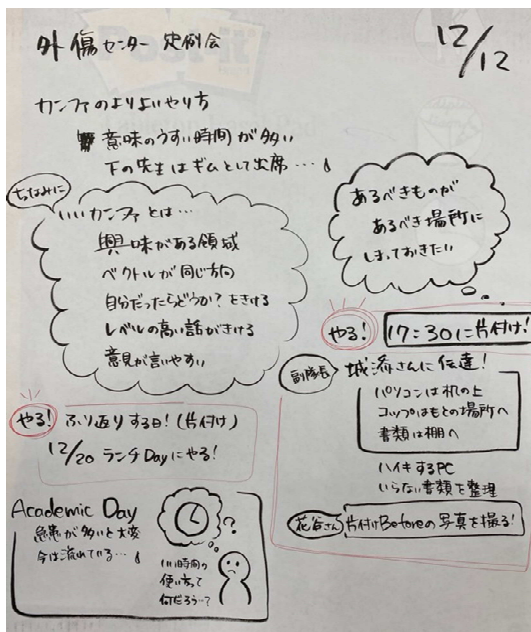 外傷センター 定例会
12/12
カンファのよりよいやり方
意味のうすい時間が多い
下の先生はギムとして出席…
ちなみに
いいカンファとは…
興味がある領域
ベクトルが同じ方向
自分だったらどうか?をきける
レベルの高い話がきける
意見が言いやすい
あるべきものが
あるべき場所に
しまっておきたい
やる! 17:30に片付け!
副隊長 城済さんに伝達!
パソコンは机の上
コップはもとの場所へ
書類は棚へ
ハイキするPC
いらない書類を整理
花谷さん 片付けBeforeの写真を撮る!
やる! ふり返りする日!(片付け)
12/20 ランチDayにやる!
Academic Day
急患が多いと大変
今は流れている…
?
いい時間の
使い方って
何だろう…?